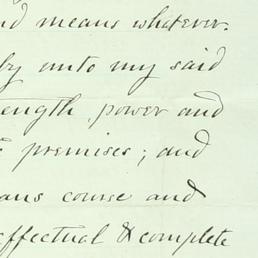 nd means whatever.
by unto my said
ength power and
premises; and
ans course and
effectual & complete